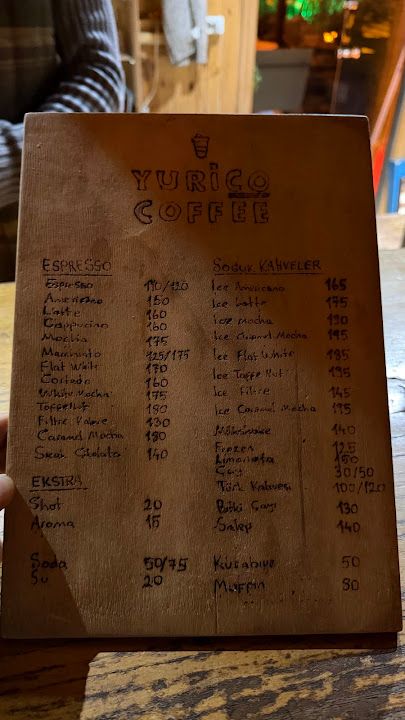 YURİCO
COFFEE
ESPRESSO
Espresso 110/120
Americano 150
Latte 160
Cappucino 160
Mocha 175
Macchiato 125/175
Flat White 170
Cortado 160
White Mocha 175
Toffeenut 190
Filtre Kahve 130
Caramel Mocha 190
Sıcak Çikolata 140
EKSTRA
Shot 20
Aroma 15
Soda 50/75
Su 20
SOĞUK KAHVELER
Ice Americano 165
Ice Latte 175
Ice Mocha 190
Ice Caramel Mocha 195
Ice Flat White 185
Ice Toffe Nut 195
Ice Filtre 145
Ice Caramel Mocha 195
Milkshake 140
Frozen 125
Limonata 150
Çay 30/50
Türk Kahvesi 100/120
Bitki Çayı 130
Salep 140
Kurabiye 50
Muffin 80